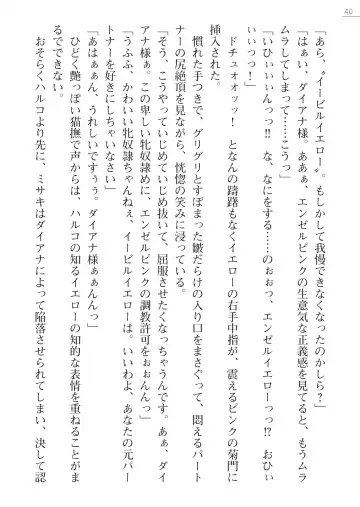 40
「あら、〝イービルイエロー〟。もしかして我慢できなくなったのかしら?」
「はぁい、ダイアナ様。ああぁ、エンゼルピンクの生意気な正義感を見てると、もうムラ
ムラしてしまって……こうっ」
「いひぃぃぃんっっ!! な、なにをする……のぉおっ、エンゼルイエローっっ!? おひぃ
いいっつ!」
ドチュォオッッ! となんの躊躇もなくイエローの右手中指が、震えるピンクの菊門に
挿入された。
慣れた手つきで、グリグリとすぼまった皺だらけの入り口をまさぐって、悶えるパート
ナーの尻絶頂を見ながら、恍惚の笑みに浸っている。
「そう、こうやっていじめていじめ抜いて、屈服させたくなっちゃうんです。あぁ、ダイ
アナ様ぁ。この卑しい牝奴隷めに、エンゼルピンクの調教許可をぉおんんっ」
「うふふ、かわいい牝奴隷ちゃんねぇ、イービルイエローは。いいわよ、あなたの元パー
トナーを好きにしちゃいなさい」
「あはぁぁん、うれしいですぅぅ。ダイアナ様ぁぁんんっ」
ひどく艶っぽい猫撫で声からは、ハルコの知るイエローの知的な表情を重ねることがま
るでできない。
おそらくハルコより先に、ミサキはダイアナによって陥落させられてしまい、決して認